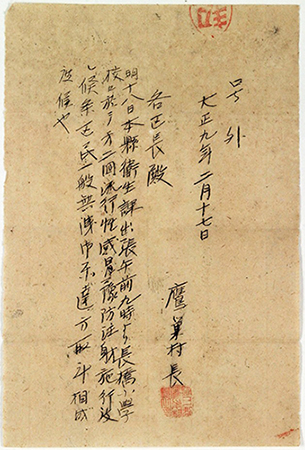 号外
大正九年二月十七日
各区長殿 鷹巣村長
明十八日本縣衛生課出張午前九時ゟ長橋小学
校ニ於テ第二回流行性感冒豫防注射施行致
し候条区民一般無洩御示達方取斗相成
度候也